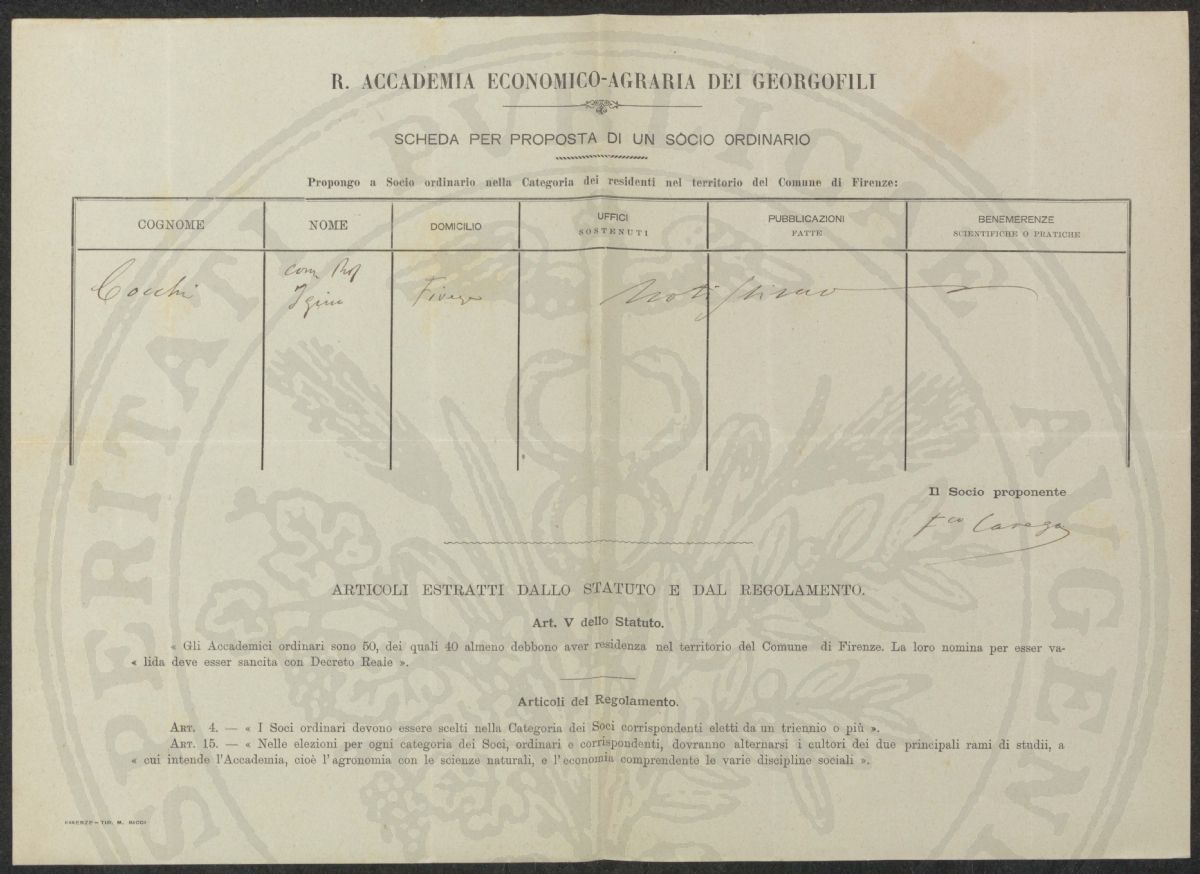 R. ACCADEMIA ECONOMICO-AGRARIA DEI GEORGOFILI
SCHEDA PER PROPOSTA DI UN SOCIO ORDINARIO
Propongo a Socio ordinario nella Categoria dei residenti nel territorio del Comune di Firenze:
COGNOME NOME DOMICILIO UFFICI SOSTENUTI PUBBLICAZIONI FATTE BENEMERENZE SCIENTIFICHE O PRATICHE
com Prof
Cocchi Igino Firenze Notissimo
Il Socio proponente
Fco Carega
ARTICOLI ESTRATTI DALLO STATUTO E DAL REGOLAMENTO.
Art. V dello Statuto.
« Gli Accademici ordinari sono 50, dei quali 40 almeno debbono aver residenza nel territorio del Comune di Firenze. La loro nomina per esser va-
« lida deve esser sancita con Decreto Reale ».
Articoli del Regolamento.
ART. 4. — « I Soci ordinari devono essere scelti nella Categoria dei Soci corrispondenti eletti da un triennio o più ».
ART. 15. — « Nelle elezioni per ogni categoria dei Soci, ordinari e corrispondenti, dovranno alternarsi i cultori dei due principali rami di studii, a
« cui intende l'Accademia, cioè l'agronomia con le scienze naturali, e l'economia comprendente le varie discipline sociali ».
FIRENZE - TIP. M. RICCI
PROSPERITATI PUBLICAE AVGENDAE